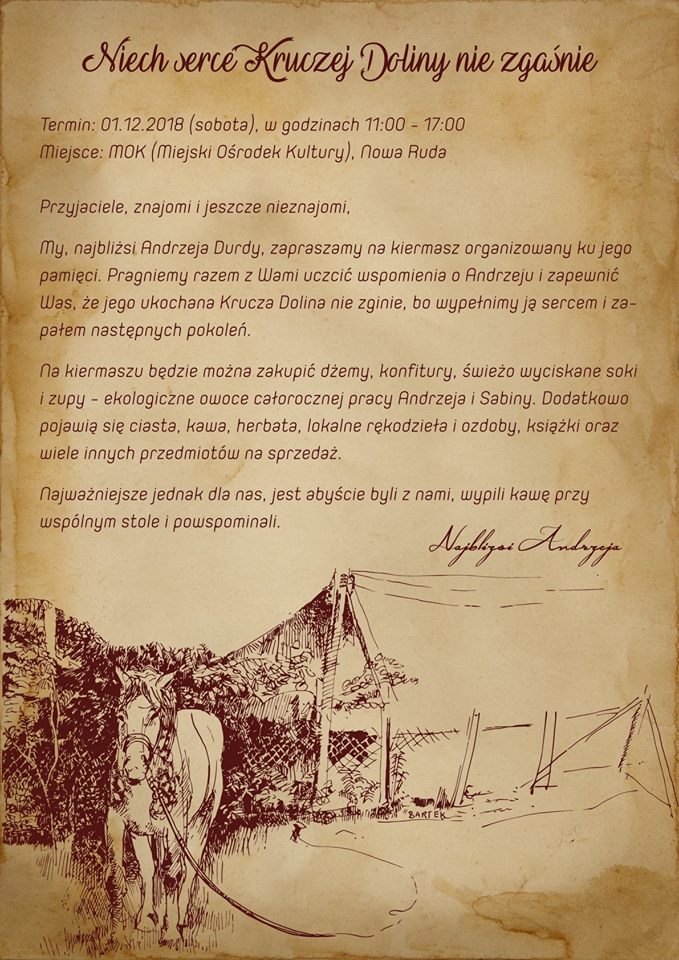 Niech serce Kruczej Doliny nie zgaśnie
Termin: 01.12.2018 (sobota), w godzinach 11:00 - 17:00
Miejsce: MOK (Miejski Ośrodek Kultury), Nowa Ruda
Przyjaciele, znajomi i jeszcze nieznajomi,
My, najbliżsi Andrzeja Durdy, zapraszamy na kiermasz organizowany ku jego
pamięci. Pragniemy razem z Wami uczcić wspomienia o Andrzeju i zapewnić
Was, że jego ukochana Krucza Dolina nie zginie, bo wypełnimy ją sercem i za-
pałem następnych pokoleń.
Na kiermaszu będzie można zakupić dżemy, konfitury, świeżo wyciskane soki
i zupy - ekologiczne owoce całorocznej pracy Andrzeja i Sabiny. Dodatkowo
pojawią się ciasta, kawa, herbata, lokalne rękodzieła i ozdoby, książki oraz
wiele innych przedmiotów na sprzedaż.
Najważniejsze jednak dla nas, jest abyście byli z nami, wypili kawę przy
wspólnym stole i powspominali.
Najbliżsi Andrzeja
BARTEK